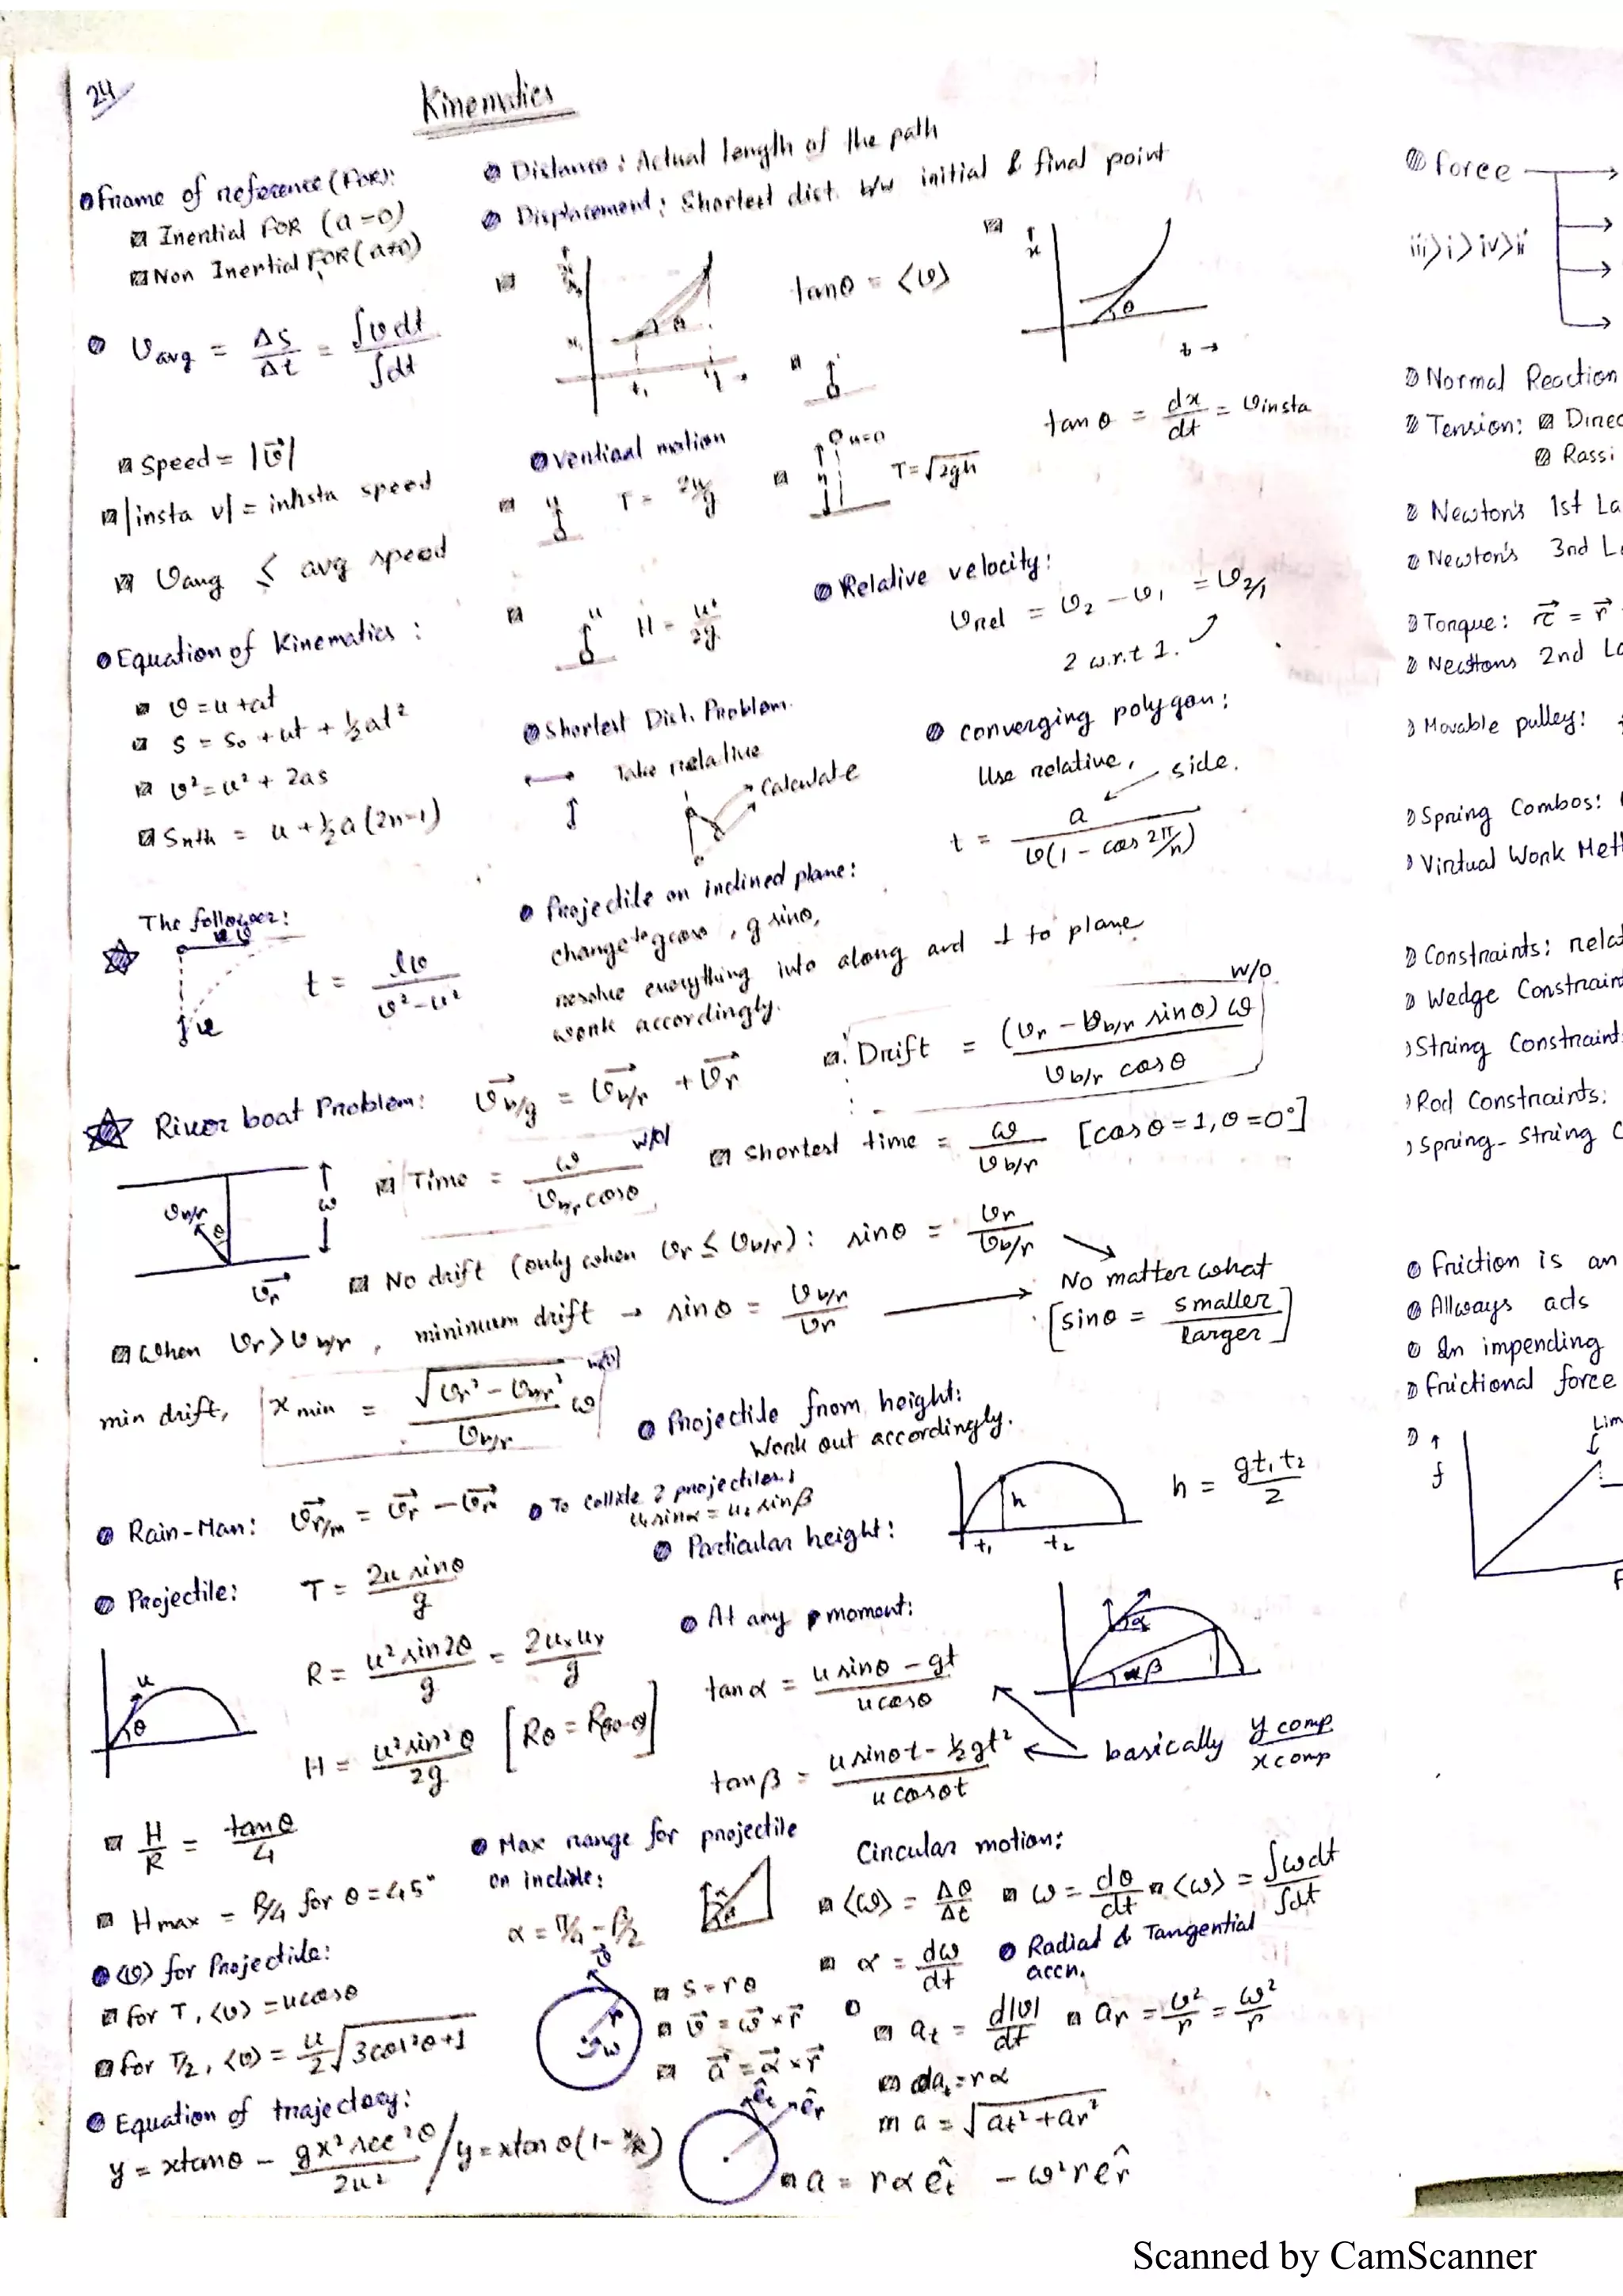 24
Kinematics
Frame of reference (FOR):
Inertial FOR (a=0)
Non Inertial FOR (a≠0)
Distance: Actual length of the path
Displacement: Shortest dist. b/w initial & final point
tanθ = <v>
x
θ
t →
V avg = Δs/Δt = ∫v dt / ∫dt
tan θ = dx/dt = v insta
Speed = |v⃗|
|insta v| = insta speed
Vavg ≤ avg speed
Vertical motion
u T = 2u/g
u=0 h T = √2gh
u H = u²/2g
Relative velocity:
Vrel = v₂ − v₁ = v₂/₁
2 w.r.t 1.
Equation of Kinematics:
v = u + at
s = s₀ + ut + ½at²
v² = u² + 2as
Snth = u + ½a(2n−1)
Shortest Dist. Problem
Take relative
Calculate
Converging polygon:
Use relative, side.
t = a / v(1 − cos 2π/n)
The follower:
v
u
t = lv / v²−u²
Projectile on inclined plane:
change to gcosθ, g sinθ,
resolve everything into along and ⊥ to plane
work accordingly.
River boat Problem: v⃗b/g = v⃗b/r + v⃗r
Drift = (vr − vb/r sinθ) ω / vb/r cosθ w/o
Time = ω / vb/r cosθ w/o
Shortest time = ω / vb/r [cosθ = 1, θ = 0°]
vb/r θ ω
v⃗r
No drift (only when vr ≤ vb/r): sinθ = vr / vb/r
When vr > vb/r, minimum drift → sinθ = vb/r / vr
No matter what
[sinθ = smaller / larger]
min drift, x min = √vr² − vb/r² ω / vb/r
Projectile from height:
Work out accordingly.
Rain-Man: v⃗r/m = v⃗r − v⃗m
To collide 2 projectiles:
u₁ sinα = u₂ sinβ
Particular height:
h
t₁ t₂
h = gt₁t₂ / 2
Projectile: T = 2u sinθ / g
R = u² sin2θ / g = 2uₓuy / g
u
θ
H = u² sin²θ / 2g [Rθ = R90-θ]
At any moment:
tanα = u sinθ − gt / u cosθ
tanβ = u sinθt − ½gt² / u cosθt
α
β
basically y comp / x comp
H/R = tanθ / 4
Hmax = R/4 for θ = 45°
Max range for projectile
on incline:
α = π/4 − β/2
Circular motion:
<ω> = Δθ/Δt ω = dθ/dt <ω> = ∫ωdt / ∫dt
α = dω/dt
Radial & Tangential
accn.
<v> for Projectile:
for T, <v> = u cosθ
for T/2, <v> = u/2 √3cos²θ+1
v⃗
r
ω
s = rθ
v⃗ = ω⃗ × r⃗
a⃗ = α⃗ × r⃗
at = d|v|/dt ar = v²/r = ω²/r
at = rα
a = √at² + ar²
Equation of trajectory:
y = xtanθ − gx² sec²θ / 2u² / y = xtanθ(1 − x/R)
êt êr
a = rα êt − ω²r êr
Force
iii>i>iv>ii
Normal Reaction
Tension: Direc
Rassi
Newton's 1st La
Newton's 3rd L
Torque: τ⃗ = r⃗
Newtons 2nd La
Movable pulley:
Spring Combos:
Virtual Work Met
Constraints: relat
Wedge Constrain
String Constraint
Rod Constraints:
Spring-String C
Friction is an
Allways acts
In impending
Frictional force
Lim
f
F
Scanned by CamScanner